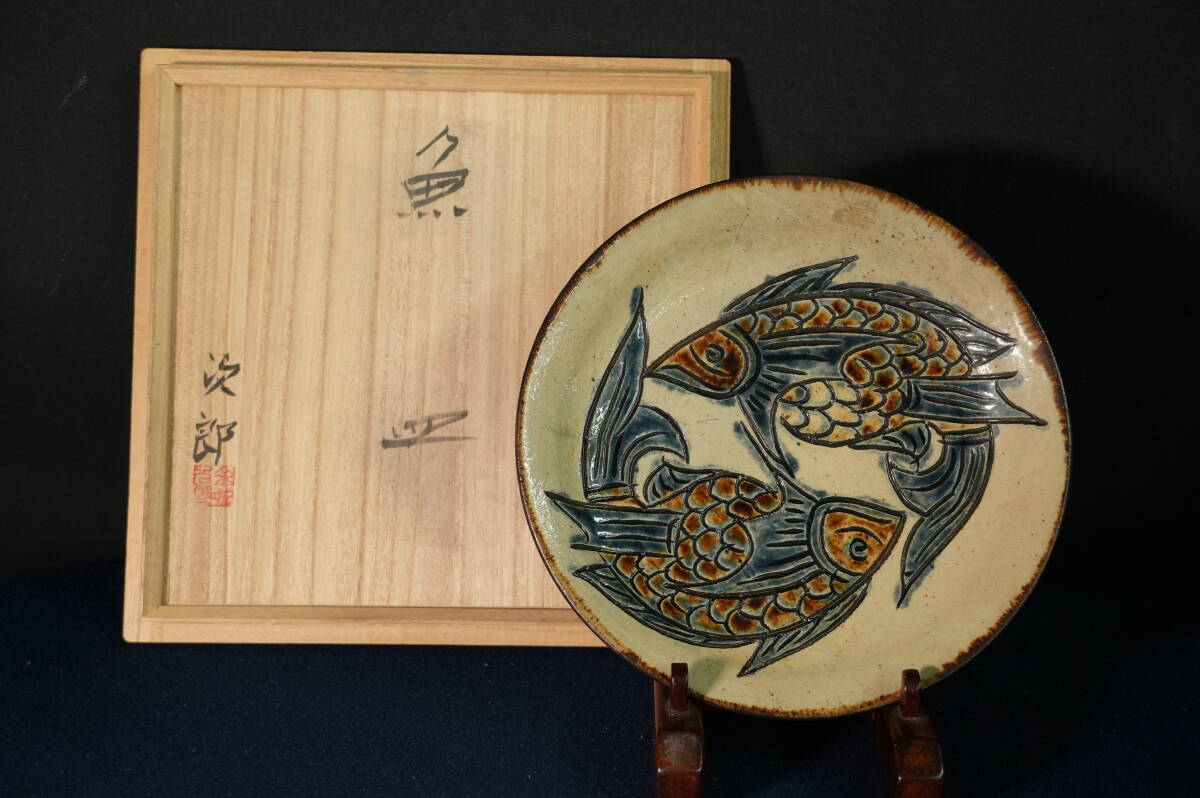 魚皿
次郎